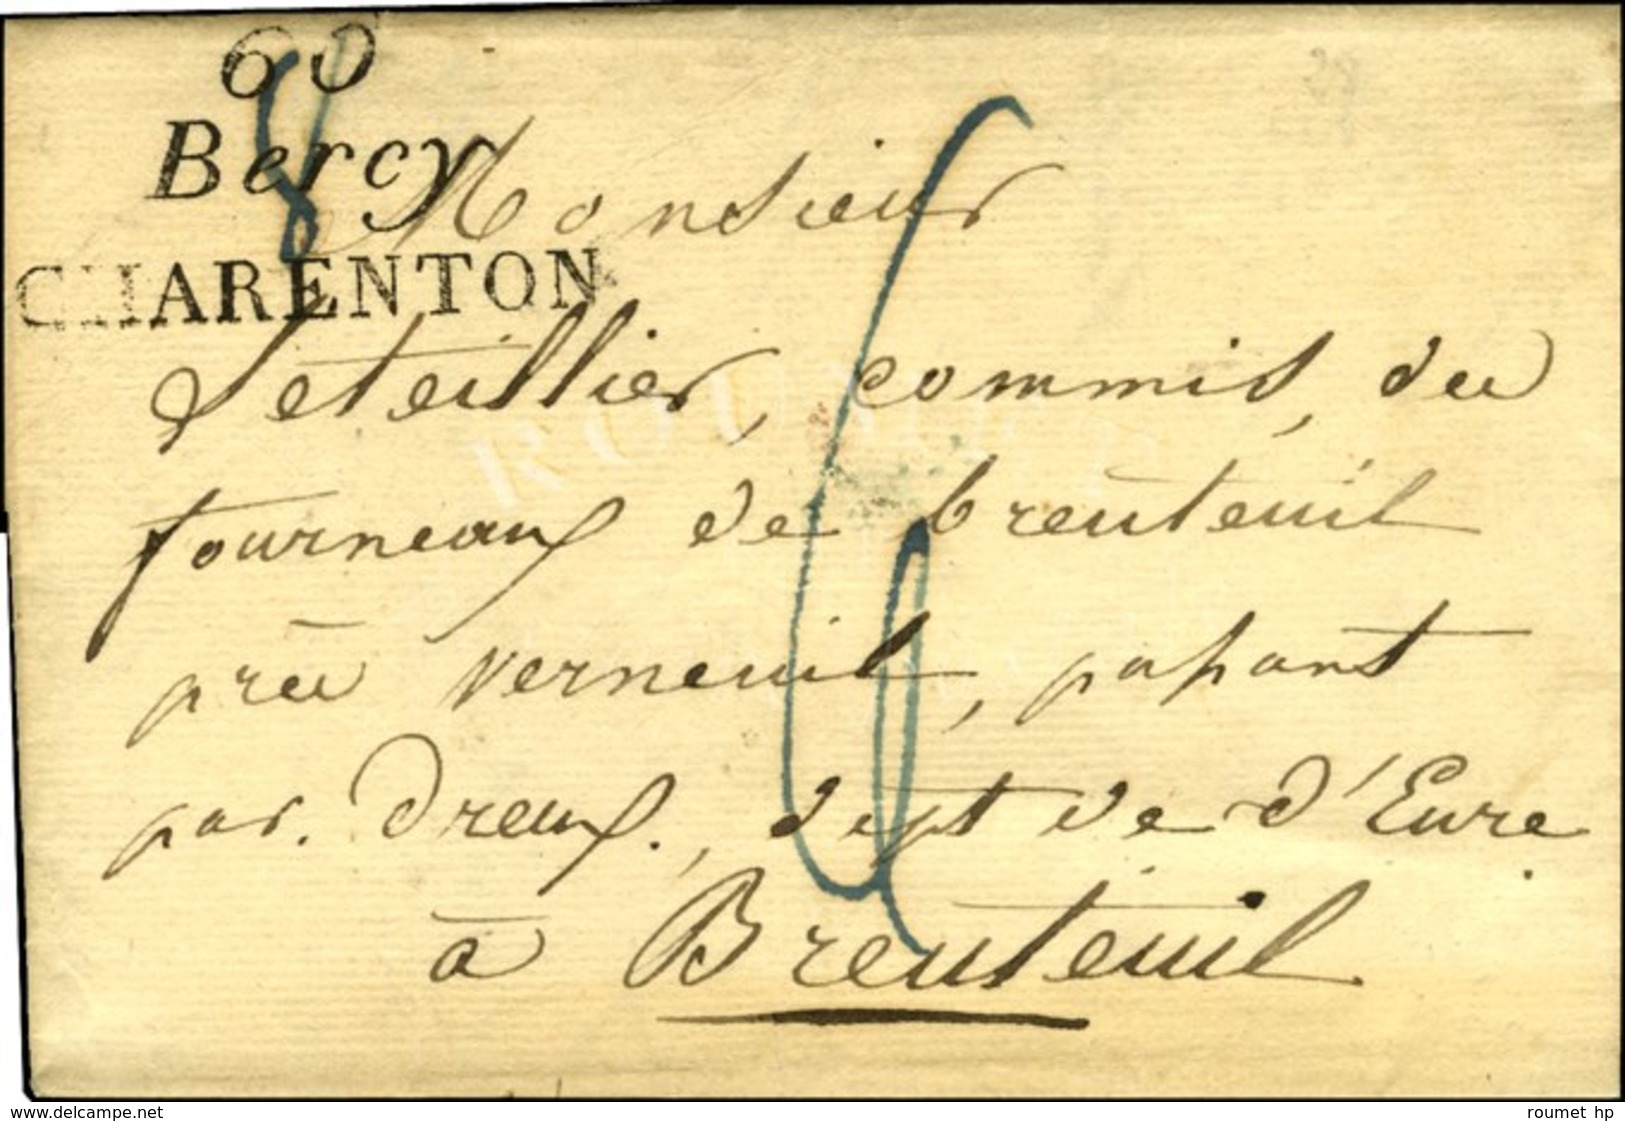 60
Bercy
CHARENTON
Monsieur
Leteillier, commis, du
fourneaux de breuteuil
près Verneuil, passant
par. Dreux., dept de d'Eure
à Breuteuil
ROUMET
www.delcampe.net
roumet hp